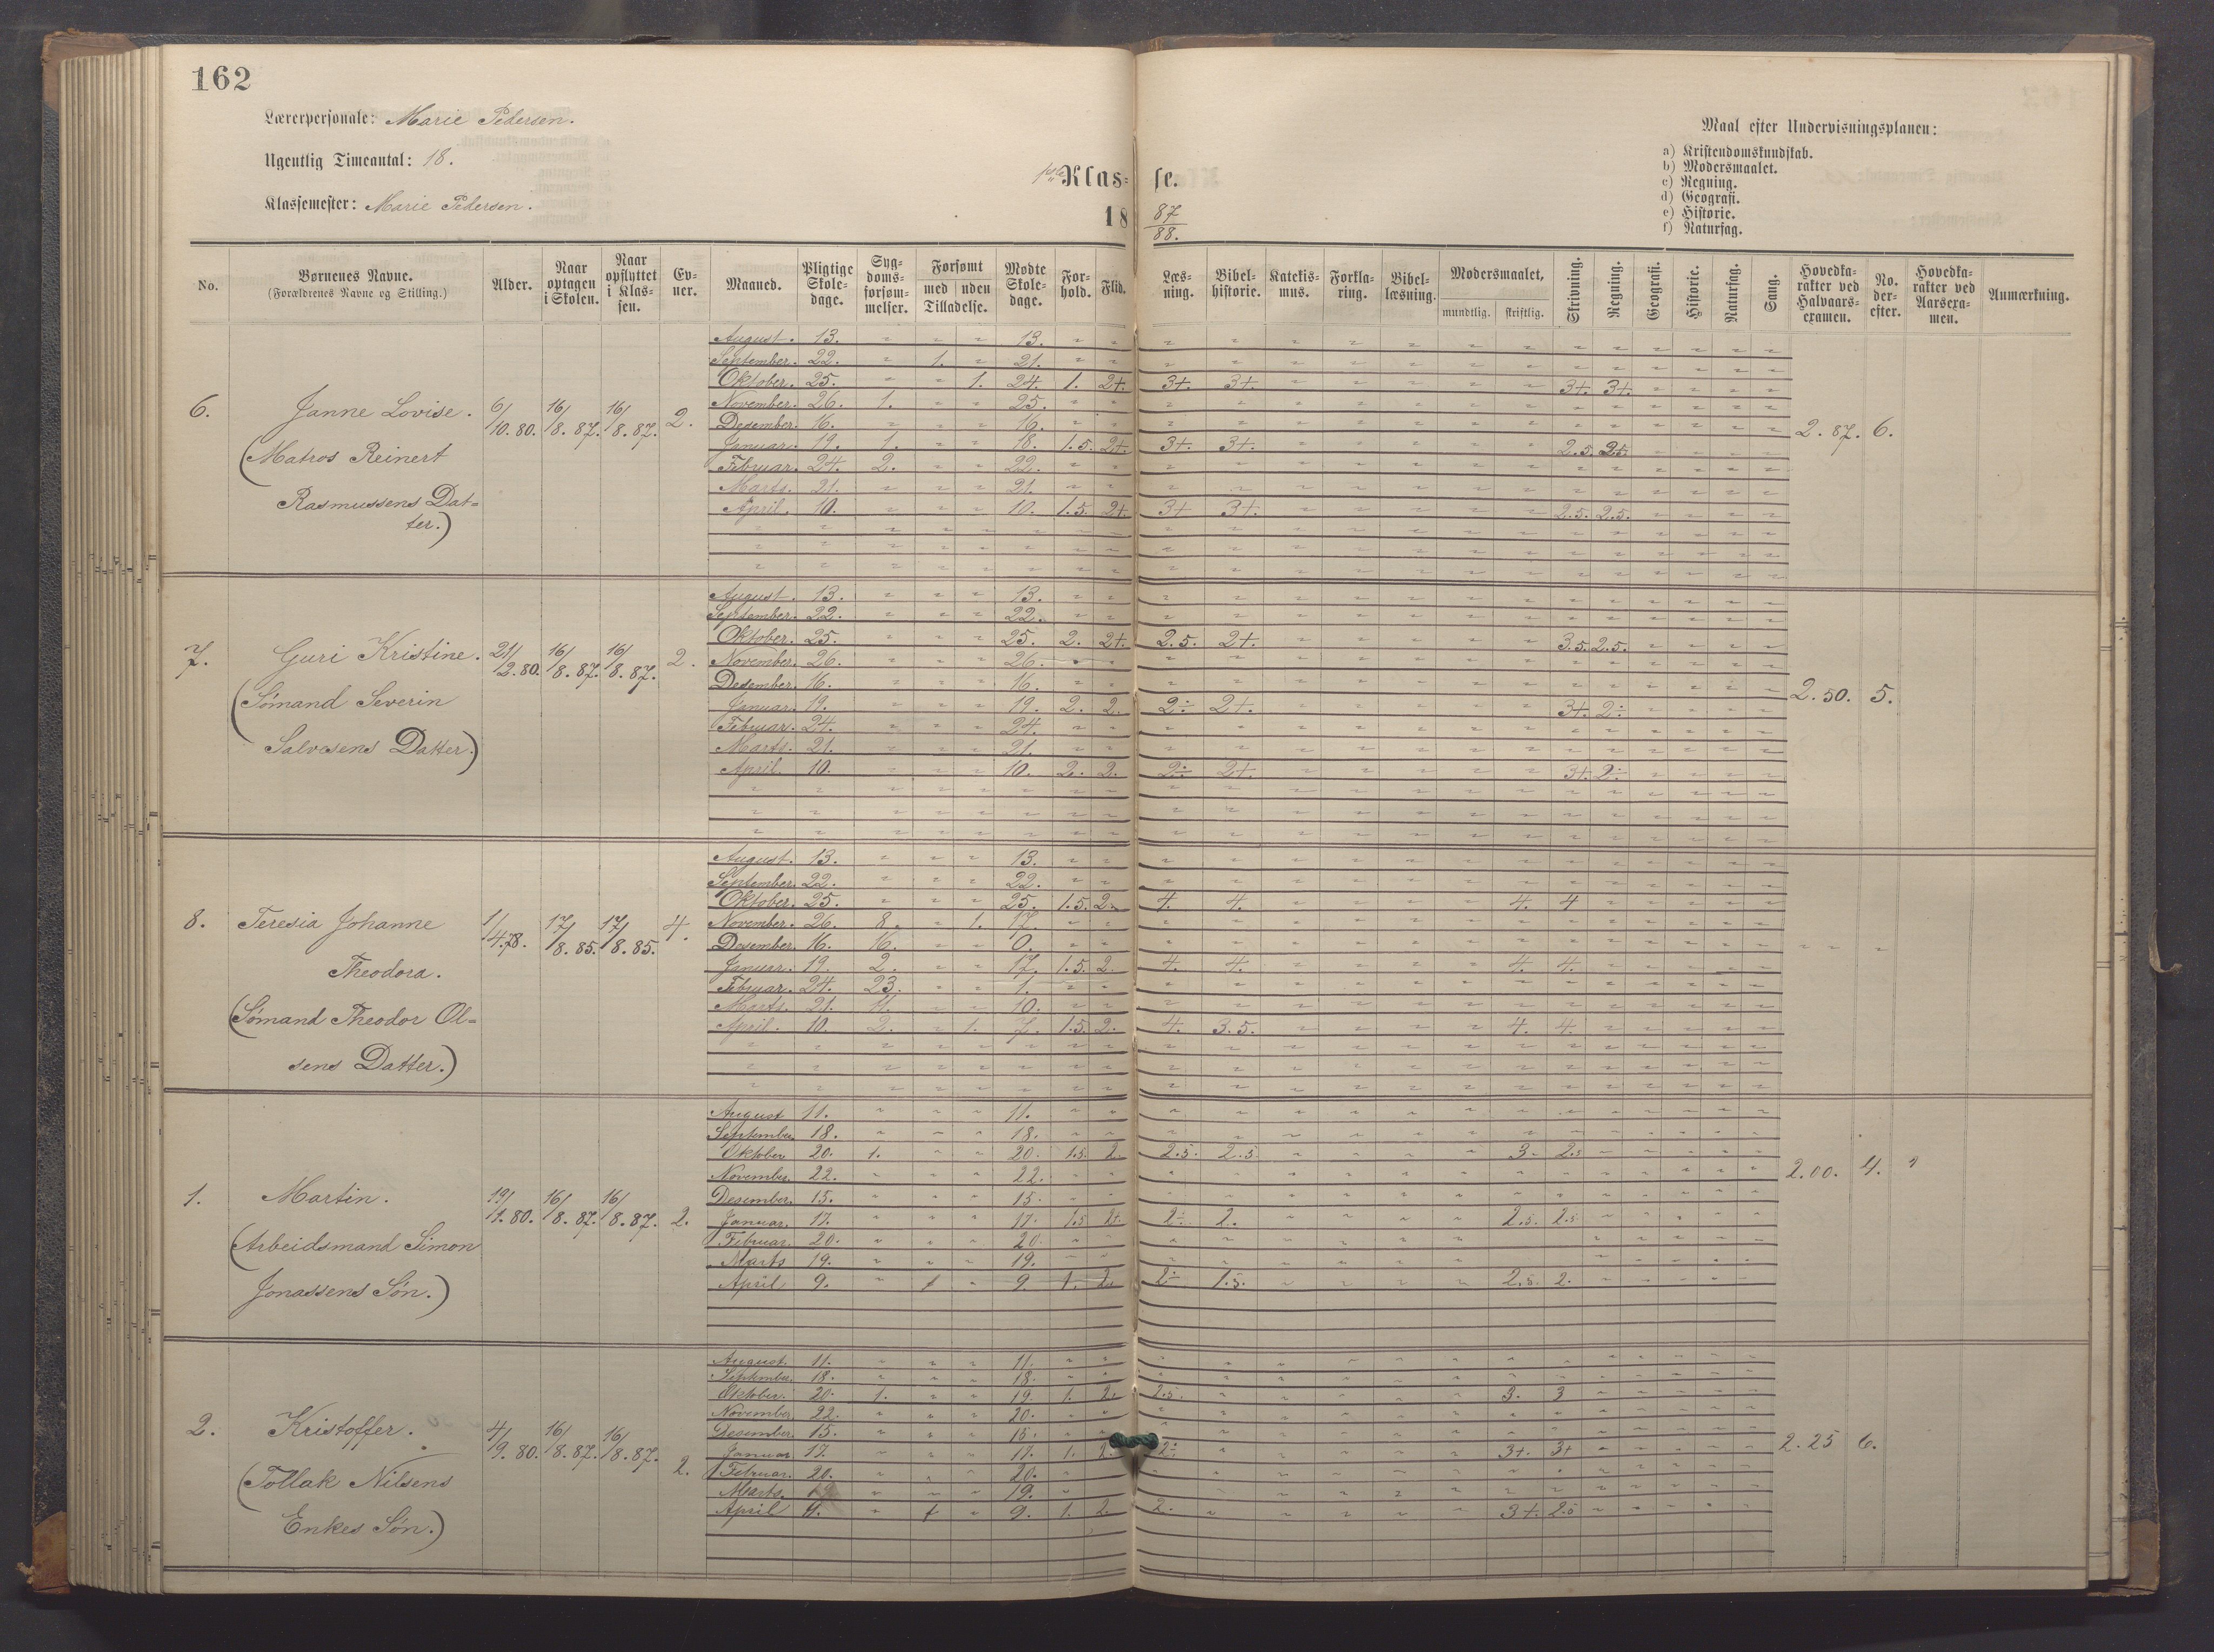 162
Lærerpersonale: Marie Pedersen.
Ugentlig Timeantal: 18.
Klassemester: Marie Pedersen.
1ste Klasse.
1887/88.
Maal efter Undervisningsplanen:
a) Kristendomskundskab.
b) Modersmaalet.
c) Regning.
d) Geografi.
e) Historie.
f) Naturfag.
No. | Børnenes Navne. (Forældrenes Navne og Stilling.) | Alder. | Naar optagen i Skolen. | Naar opflyttet i Klassen. | Evner. | Maaned. | Pligtige Skoledage. | Sygdomsforsømmelser. | Forsømt med uden Tilladelse. | Mødte Skoledage. | Forhold. | Flid. | Læsning. | Bibelhistorie. | Katekismus. | Forklaring. | Bibellæsning. | Modersmaalet, mundtlig. skriftlig. | Skrivning. | Regning. | Geografi. | Historie. | Naturfag. | Sang. | Hovedkarakter ved Halvaarsexamen. | No. derefter. | Hovedkarakter ved Aarsexamen. | Anmærkning.
6. Janne Lovise. 6/10.80. 16/8.87. 16/8.87. 2. 2.87. 6.
(Matros Reinert
Rasmussens Dat=
ter.)
August. 13. 13.
September. 22. 1. 21.
Oktober. 25. 1. 24. 1. 2+. 3+. 3+. 3+. 3+.
November. 26. 1. 25.
Desember. 16. 16.
Januar. 19. 1. 18. 1.5. 2+. 3+. 3+. 2.5.
Februar. 24. 2. 22.
Marts. 21. 21.
April. 10. 10. 1.5. 2+. 3+ 3+. 2.5. 2.5.
7. Guri Kristine. 21/12.80. 16/8.87. 16/8.87. 2. 2.50. 5.
(Sømand Severin
Salvesens Datter.)
August. 13. 13.
September. 22. 22.
Oktober. 25. 25. 2. 2+. 2.5. 2+. 3.5. 2.5.
November. 26. 26.
Desember. 16. 16.
Januar. 19. 19. 2. 2. 2÷ 2+. 3+. 2÷
Februar. 24. 24.
Marts. 21. 21.
April. 10. 10. 2. 2. 2÷ 2+. 3+. 2÷
8. Teresia Johanne 1/4.78. 17/8.85. 17/8.85. 4.
Theodora.
(Sømand Theodor Ol=
sens Datter.)
August. 13. 13.
September. 22. 22.
Oktober. 25. 25. 1.5. 2. 4. 4. 4. 4
November. 26. 8. 1. 17.
Desember. 16. 16. 0.
Januar. 19. 2. 17. 1.5. 2. 4. 4. 4. 4.
Februar. 24. 23. 1.
Marts. 21. 11. 10.
April. 10. 2. 1. 7. 1.5. 2. 4. 3.5. 4. 4.
1. Martin. 19/11.80. 16/8.87. 16/8.87. 2. 2.00. 4.
(Arbeidsmand Simon
Jonassens Søn.)
August 11. 11.
September. 18. 18.
Oktober 20. 1. 20. 1.5. 2. 2.5. 2.5 3. 2.5
November. 22. 22.
Desember. 15. 15.
Januar. 17. 17. 1.5 2+. 2÷. 2. 2.5. 2.5
Februar. 20. 20.
Marts 19. 19.
April 9. 9. 1. 2. 2÷ 1.5. 2.5. 2.
2. Kristoffer. 4/9.80. 16/8.87. 16/8.87. 2. 2.25 6.
(Tollak Nilsens
Enkes Søn.)
August. 11. 11.
September. 18. 18.
Oktober. 20. 1. 19. 1. 2. 2.5. 3. 3
November 22. 20.
Desember. 15. 15.
Januar 17. 17. 1. 2. 2÷ 3+. 3+
Februar. 20. 20.
Marts. 19. 19.
April 9. 9. 1. 2. 2. 3+. 2.5